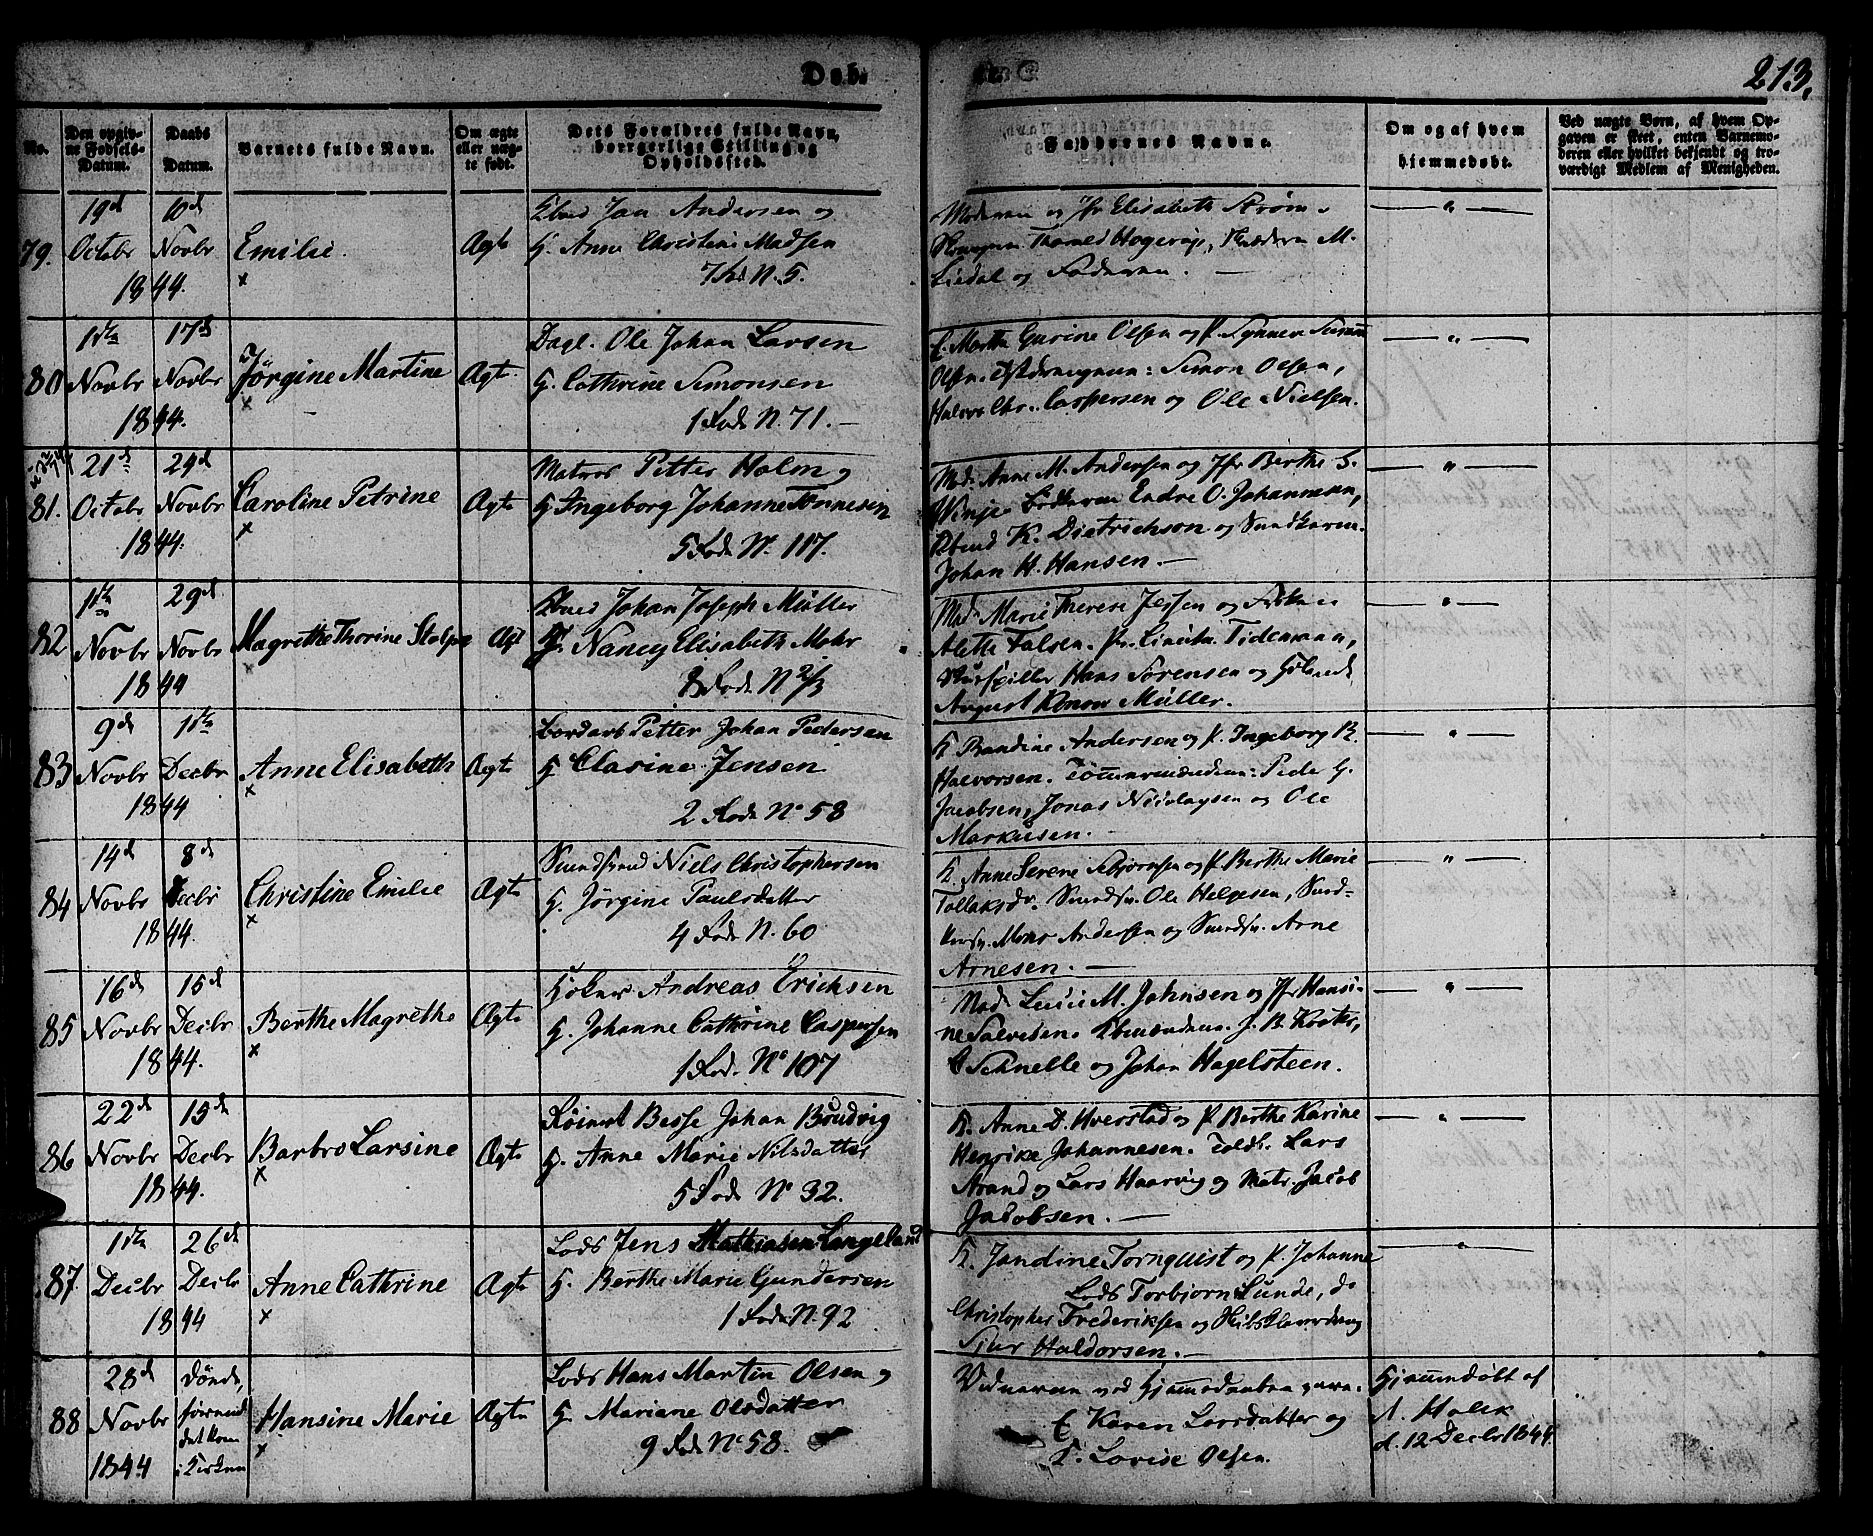 Døb.
213.
No.
Den opgiv-
ne Fødsels-
Datum.
Daabs
Datum.
Barnets fulde Navn.
Om ægte
eller uæg-
te født.
Dets Forældres fulde Navn,
borgerlige Stilling og
Opholdssted.
Faddernes Navne.
Om og af hvem
hjemmedøbt.
Ved uægte Børn, af hvem Op-
gaven er skeet, enten Barnemo-
deren eller hvilket bekjendt og tro-
værdigt Medlem af Menigheden.
79.
19d
Octobr
1844.
10d
Novbr
Emilie.
Ægte
Jan Andersen og
H. Anne Christine Madsen
7 Rode N. 5.
Moderen og Jfr Elisabeth Strøm.
Liedal og Faderen.
80
1ste
Novbr
1844.
17d
Novbr
Jörgine Martine
Ægte.
Dagl. Ole Johan Larsen
H. Cathrine Simonsen
1 Rode N. 71.
K. Marthe Gurine Olsen og P. Synneve
Olsen. : Simon Olsen,
Halvor Chr. Caspersen og Ole Nielsen.
81.
21d
Octobr
1844.
24d
Novbr
Caroline Petrine
Ægte
Matros Petter Holm og
H Ingeborg Johanne Tönnesen
5 Rode No. 117.
Mad. Anne M. Andersen og Jfr Berthe S.
Winje. Bödkeren Endre O. Johannesen,
K. Dietrichson og
Johan H. Hansen.
82
1ste
Novbr
1844
29d
Novbr
Magrethe Thorine Stolpe
Ægt
Johan Joseph Müller
H. Nancy Elisabeth Mohr
8 Rode N 2/3
Mad. Marie Therese Jessen og Frøken
Alette Falsen. Tidemann,
Skuespiller Hans Sörensen og
August Konow Müller.
83
9d
Novbr
1844
1ste
Decbr
Anne Elisabeth
Ægte
Petter Johan Pedersen
H Clasine Jensen
2 Rode No 58
K Randine Andersen og P. Ingeborg R.
Halvorsen. Tömmermændene: Peder G.
Jacobsen, Jonas Nicolaysen og Ole
Markusen.
84
14d
Novbr
1844.
8d
Decbr
Christine Emilie
Ægte
Niels Christophersen
H. Jörgine Paulsdatter
4 Rode N. 60
K. Anne Serene Asbjørnsen og P. Berthe Marie
Tollaksdr. Ole Helgesen,
Mons Andersen og Arne
Arnesen.
85
16d
Novbr
1844.
15d
Decbr
Berthe Magrethe
Ægte
Höker Andreas Erichsen
H. Johanne Cathrine Caspersen
1 Rode. No 107
Mad. Lucie M. Johnsen og Jfr Hansi-
ne Salvesen. J. B. Kooter,
Schnelle og Johan Hagelsteen.
86
22d
Novbr
1844.
15d
Decbr
Barbro Larsine
Ægte
Besse Johan Brudvig
H. Anne Marie Nilsdatter
5 Rode No 32.
K. Anne D. Hverstad og P. Berthe Karine
Henrike Johannesen. Toldb. Lars
Strand og Lars Haarvig og Matr. Jacob
Jacobsen.
87
1ste
Decbr
1844
26d
Decbr
Anne Cathrine
Ægte
Lods Jens Mathiasen Langeland
H. Berthe Marie Gundersen
1 Rode N. 92
K. Jandine Tornquist og P. Johanne
Lods Torbjörn Lunde, do
Christopher Frederiksen og
Sjur Haldorsen.
88
28d
Novbr
1844
Döde,
førend
det kom
i Kirken
Hansine Marie
Ægte
Lods Hans Martin Olsen og
H. Mariane Olsdatter
9 Rode No 58.
Vidnerne ved Hjemmedaaben vare:
K Karen Larsdatter og
K. Lovise Olsen.
Hjemmedøbt af
A. Holck
d. 12 Decbr 1844